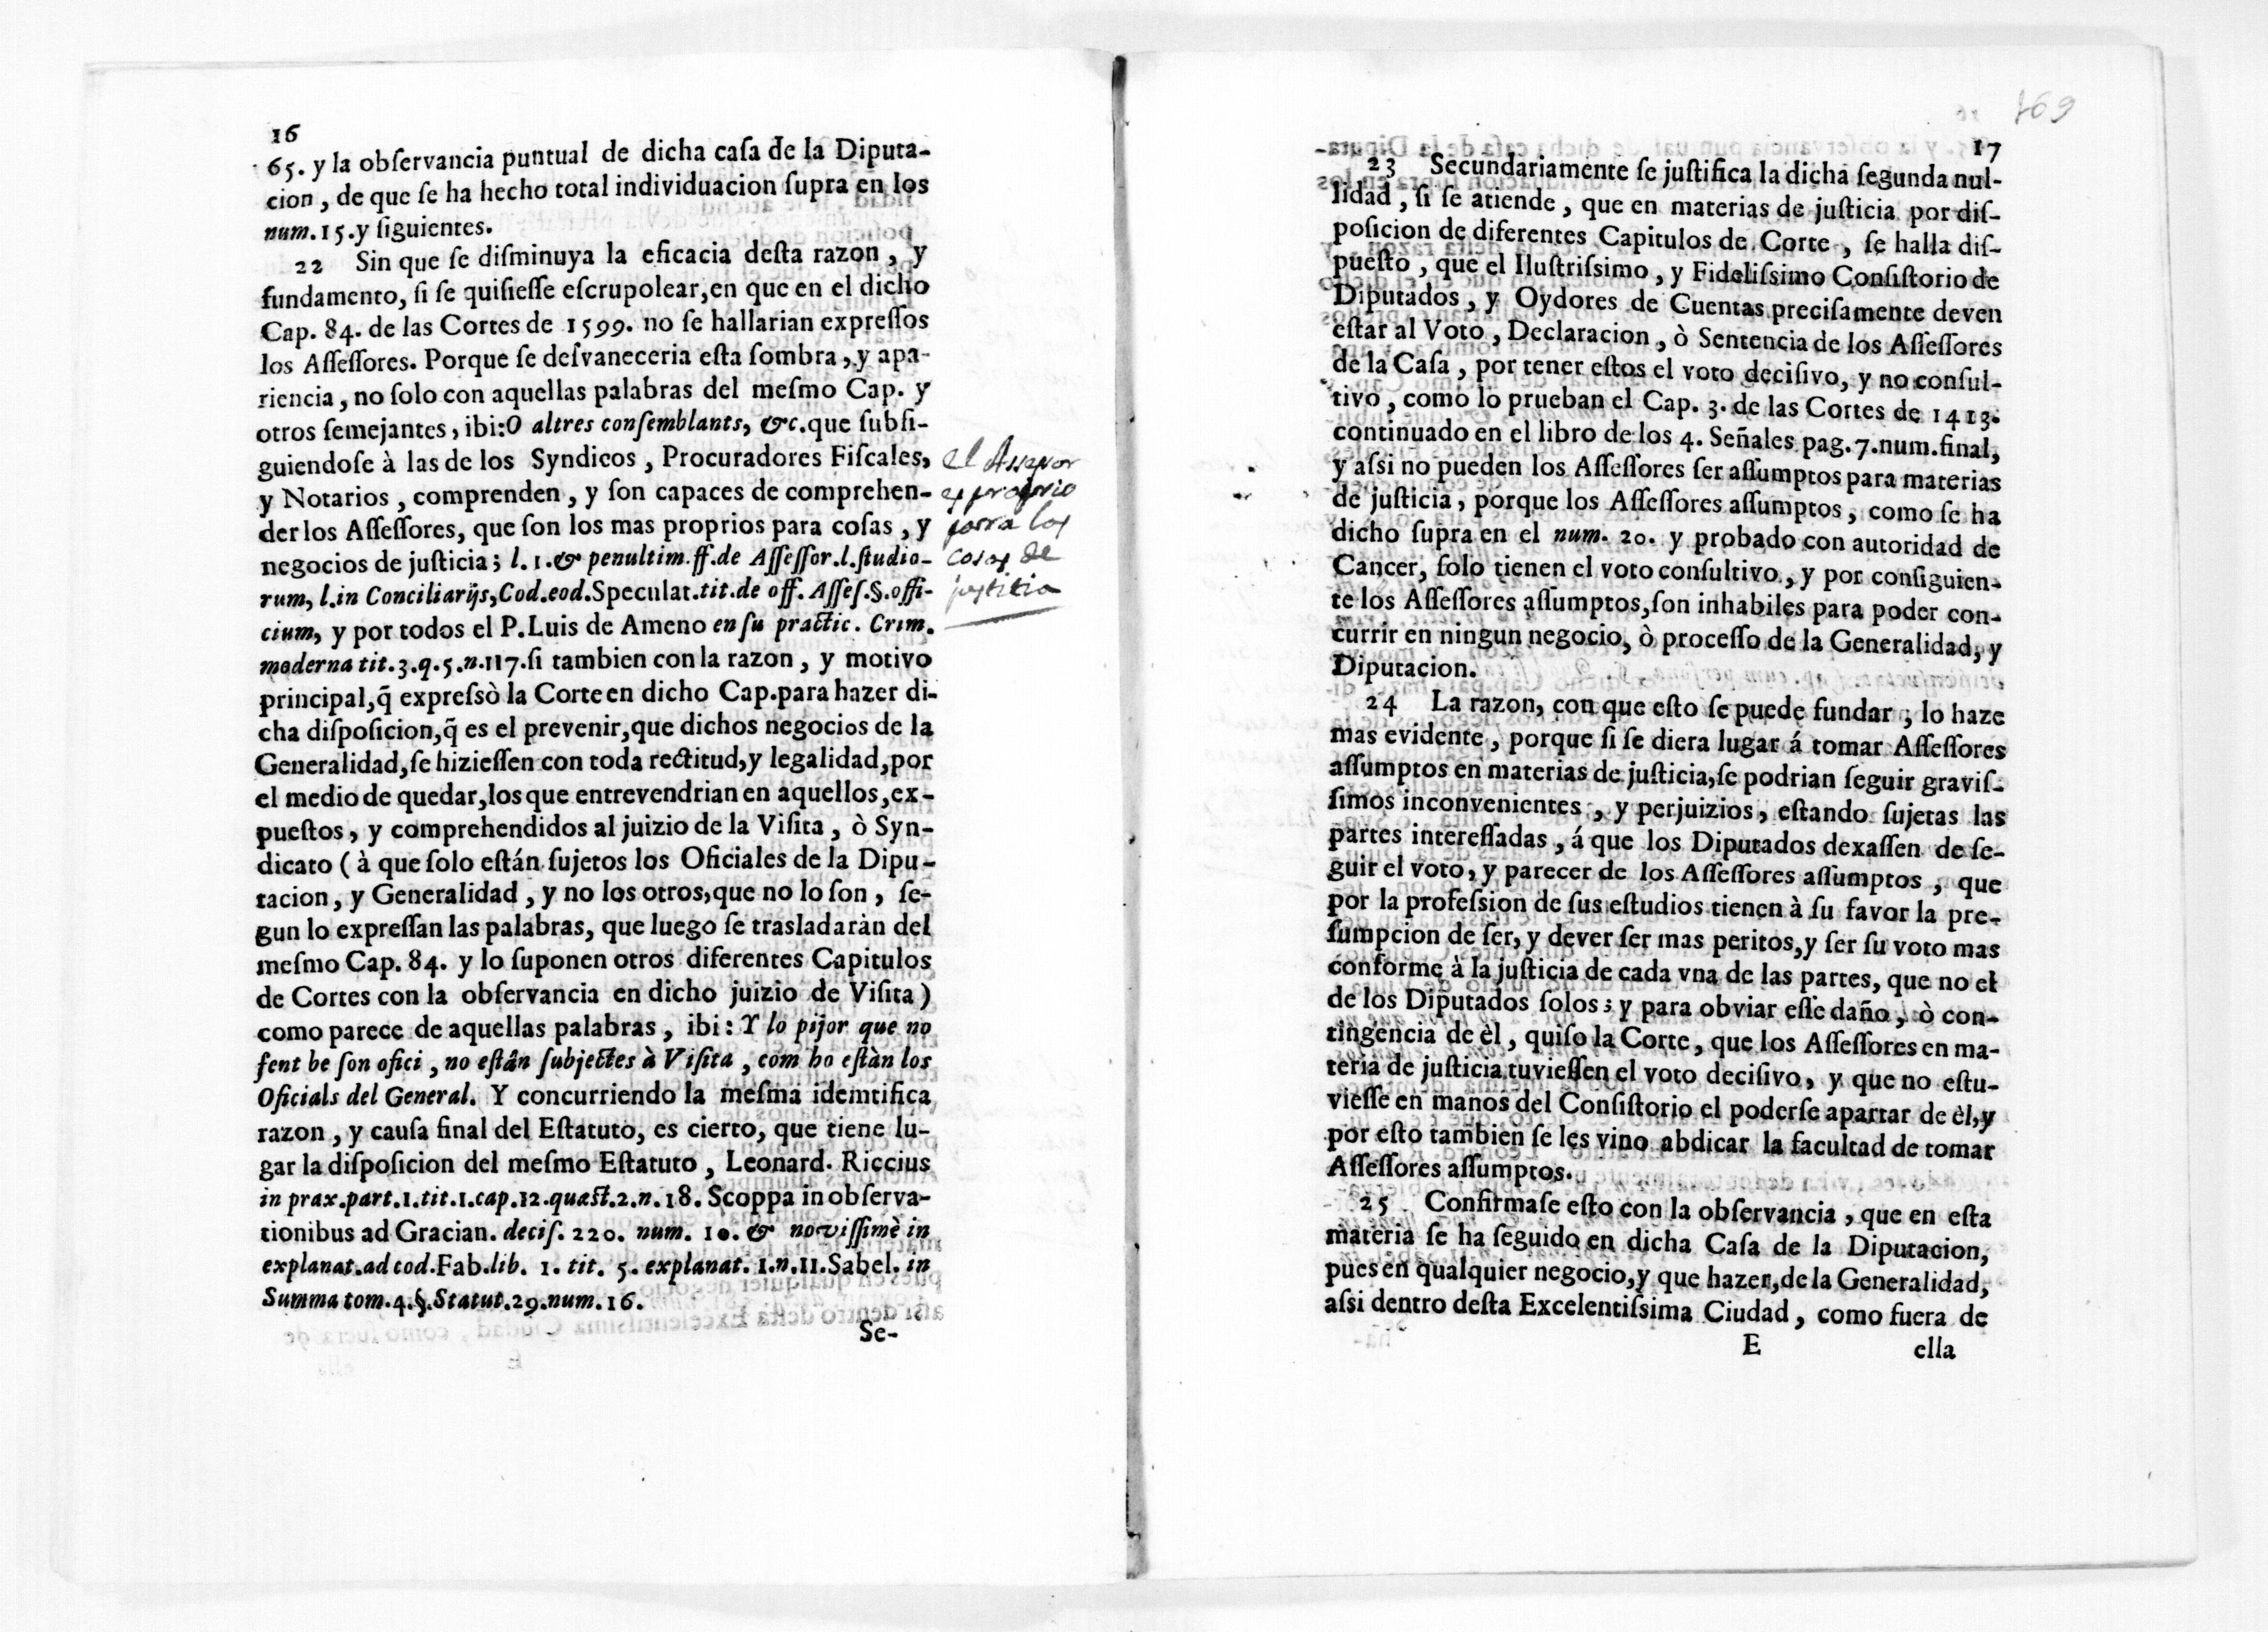 16
65. y la obſervancia puntual de dicha caſa de la Diputa-
cion, de que ſe ha hecho total individuacion ſupra en los
num. 15. y ſiguientes.
22 Sin que ſe diſminuya la eficacia deſta razon, y
fundamento, ſi ſe quiſieſſe eſcrupolear, en que en el dicho
Cap. 84. de las Cortes de 1599. no ſe hallarian expreſſos
los Aſſeſſores. Porque ſe deſvaneceria eſta ſombra, y apa-
riencia, no ſolo con aquellas palabras del meſmo Cap. y
otros ſemejantes, ibi: O altres conſemblants, &c. que ſubſi-
guiendoſe à las de los Syndicos, Procuradores Fiſcales,
y Notarios, comprenden, y ſon capaces de comprehen-
der los Aſſeſſores, que ſon los mas proprios para coſas, y
negocios de juſticia; l. 1. & penultim. ff. de Aſſeſſor. l. ſtudio-
rum, l. in Conciliarijs, Cod. eod. Speculat. tit. de off. Aſſeſ. §. offi-
cium, y por todos el P. Luis de Ameno en ſu practic. Crim.
moderna tit. 3. q. 5. n. 117. ſi tambien con la razon, y motivo
principal, q̃ expreſsò la Corte en dicho Cap. para hazer di-
cha diſpoſicion, q̃ es el prevenir, que dichos negocios de la
Generalidad, ſe hizieſſen con toda rectitud, y legalidad, por
el medio de quedar, los que entrevendrian en aquellos, ex-
pueſtos, y comprehendidos al juizio de la Viſita, ò Syn-
dicato ( à que ſolo eſtán ſujetos los Oficiales de la Dipu-
tacion, y Generalidad, y no los otros, que no lo ſon, ſe-
gun lo expreſſan las palabras, que luego ſe trasladaràn del
meſmo Cap. 84. y lo ſuponen otros diferentes Capitulos
de Cortes con la obſervancia en dicho juizio de Viſita )
como parece de aquellas palabras, ibi: Y lo pijor que no
fent be ſon ofici, no eſtàn ſubjectes à Viſita, com ho eſtàn los
Oficials del General. Y concurriendo la meſma idemtifica
razon, y cauſa final del Eſtatuto, es cierto, que tiene lu-
gar la diſpoſicion del meſmo Eſtatuto, Leonard. Riccius
in prax. part. 1. tit. 1. cap. 12. quæſt. 2. n. 18. Scoppa in obſerva-
tionibus ad Gracian. deciſ. 220. num. 10. & noviſſimè in
explanat. ad cod. Fab. lib. 1. tit. 5. explanat. 1. n. 11. Sabel. in
Summa tom. 4. §. Statut. 29. num. 16.
Se-
el Assessor
es proprio
parra las
cosas de
justitia
169
17
23 Secundariamente ſe juſtifica la dicha ſegunda nul-
lidad, ſi ſe atiende, que en materias de juſticia por diſ-
poſicion de diferentes Capitulos de Corte, ſe halla diſ-
pueſto, que el Iluſtriſsimo, y Fideliſsimo Conſiſtorio de
Diputados, y Oydores de Cuentas preciſamente deven
eſtar al Voto, Declaracion, ò Sentencia de los Aſſeſſores
de la Caſa, por tener eſtos el voto deciſivo, y no conſul-
tivo, como lo prueban el Cap. 3. de las Cortes de 1413.
continuado en el libro de los 4. Señales pag. 7. num. final,
y aſsi no pueden los Aſſeſſores ſer aſſumptos para materias
de juſticia, porque los Aſſeſſores aſſumptos, como ſe ha
dicho ſupra en el num. 20. y probado con autoridad de
Cancer, ſolo tienen el voto conſultivo, y por conſiguien-
te los Aſſeſſores aſſumptos, ſon inhabiles para poder con-
currir en ningun negocio, ò proceſſo de la Generalidad, y
Diputacion.
24 La razon, con que eſto ſe puede fundar, lo haze
mas evidente, porque ſi ſe diera lugar á tomar Aſſeſſores
aſſumptos en materias de juſticia, ſe podrian ſeguir graviſ-
ſimos inconvenientes, y perjuizios, eſtando ſujetas las
partes intereſſadas, á que los Diputados dexaſſen de ſe-
guir el voto, y parecer de los Aſſeſſores aſſumptos, que
por la profeſsion de ſus eſtudios tienen à ſu favor la pre-
ſumpcion de ſer, y dever ſer mas peritos, y ſer ſu voto mas
conforme à la juſticia de cada vna de las partes, que no el
de los Diputados ſolos; y para obviar eſte daño, ò con-
tingencia de èl, quiſo la Corte, que los Aſſeſſores en ma-
teria de juſticia tuvieſſen el voto deciſivo, y que no eſtu-
vieſſe en manos del Conſiſtorio el poderſe apartar de èl, y
por eſto tambien ſe les vino abdicar la facultad de tomar
Aſſeſſores aſſumptos.
25 Confirmaſe eſto con la obſervancia, que en eſta
materia ſe ha ſeguido en dicha Caſa de la Diputacion,
pues en qualquier negocio, y que hazer, de la Generalidad,
aſsi dentro deſta Excelentiſsima Ciudad, como fuera de
E ella